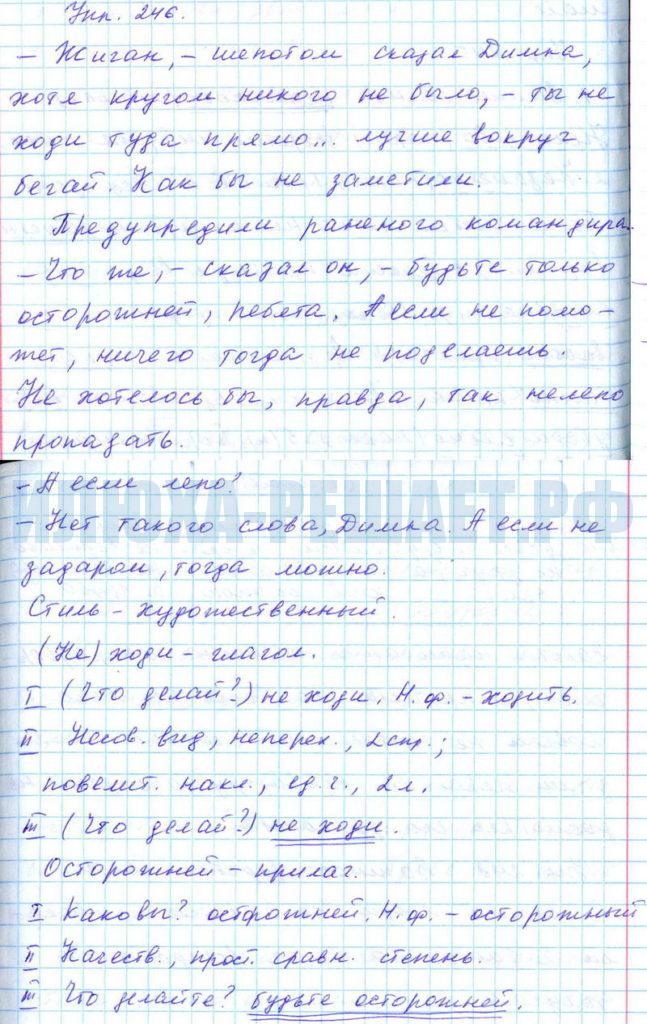 Упр. 246.
— Жиган, — шепотом сказал Димка,
хотя кругом никого не было, — ты не
ходи туда прямо... лучше вокруг
бегай. Как бы не заметили.
Предупредили раненого командира.
— Что же, — сказал он, — будьте только
осторожней, ребята. А если не помо-
жет, ничего тогда не поделаешь.
Не хотелось бы, правда, так нелепо
пропадать.
— А если лепо?
ИГЮХА-РЕШАЕТ.РФ
— Нет такого слова, Димка. А если не
задаром, тогда можно.
Стиль — художественный.
(Не) ходи — глагол.
I (Что делай?) не ходи. Н.ф. — ходить.
II Несов. вид, неперех., 2 спр.;
повелит. накл., ед.ч., 2 л.
III (Что делай?) не ходи.
Осторожней — прилаг.
I Каковы? осторожней. Н.ф. — осторожный
II Качеств., прост. сравн. степень.
III Что делайте? будьте осторожней.